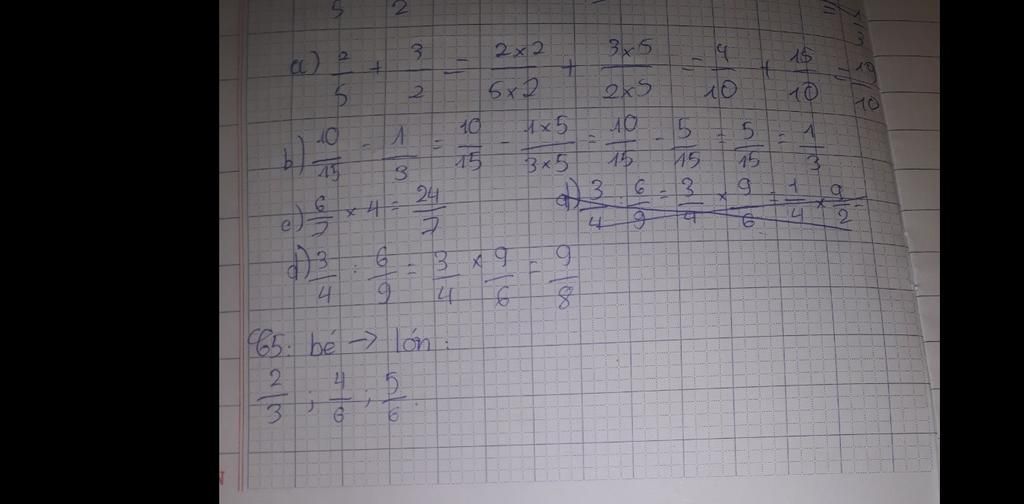 5 2 = 1/3
a) 2/5 + 3/2 = 2×2/5×2 + 3×5/2×5 = 4/10 + 15/10 = 19/10
b) 10/15 - 1/3 = 10/15 - 1×5/3×5 = 10/15 - 5/15 = 5/15 = 1/3
c) 6/7 × 4 = 24/7
d) 3/4 : 6/9 = 3/4 × 9/6 = 1/4 × 9/2 =
d) 3/4 : 6/9 = 3/4 × 9/6 = 9/8
C5: bé → lớn:
2/3 ; 4/6 ; 5/6.